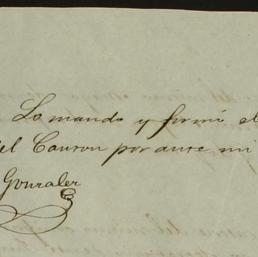 Lo mando y firmó el
el Cauron por ante mi
Gonzalez